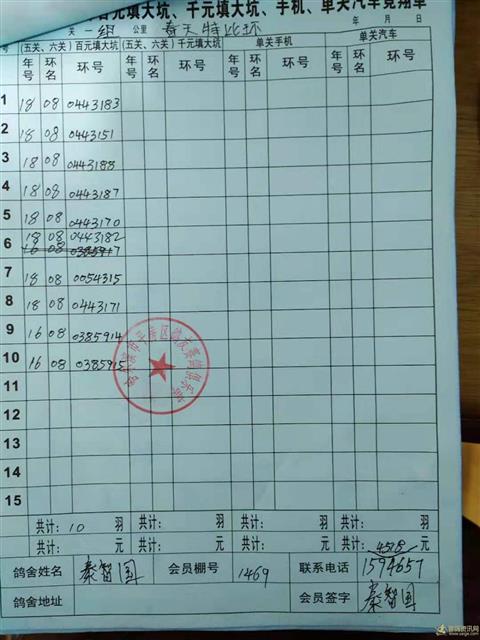 百元填大坑、千元填大坑、手机、单关汽车竞翔单
关 一组 公里 春天特比环 年 月 日
号 (五关、六关)百元填大坑 (五关、六关)千元填大坑 单关手机 单关汽车
年号 环名 环号 年号 环名 环号 年号 环名 环号 年号 环名 环号
1 18 08 0443183
2 18 08 0443151
3 18 08 0443188
4 18 08 0443187
5 18 08 0443170
18 08 0443182
6 16 08 0385917
7 18 08 0054315
8 18 08 0443171
9 16 08 0385914
10 16 08 0385915
11
12
13
14
15
共计: 10 羽 共计: 羽 共计: 羽 共计: 羽
共计: 元 共计: 元 共计: 元 共计: 元
4518
鸽舍姓名 秦智国 会员棚号 1469 联系电话 1594657
鸽舍地址 会员签字 秦智国